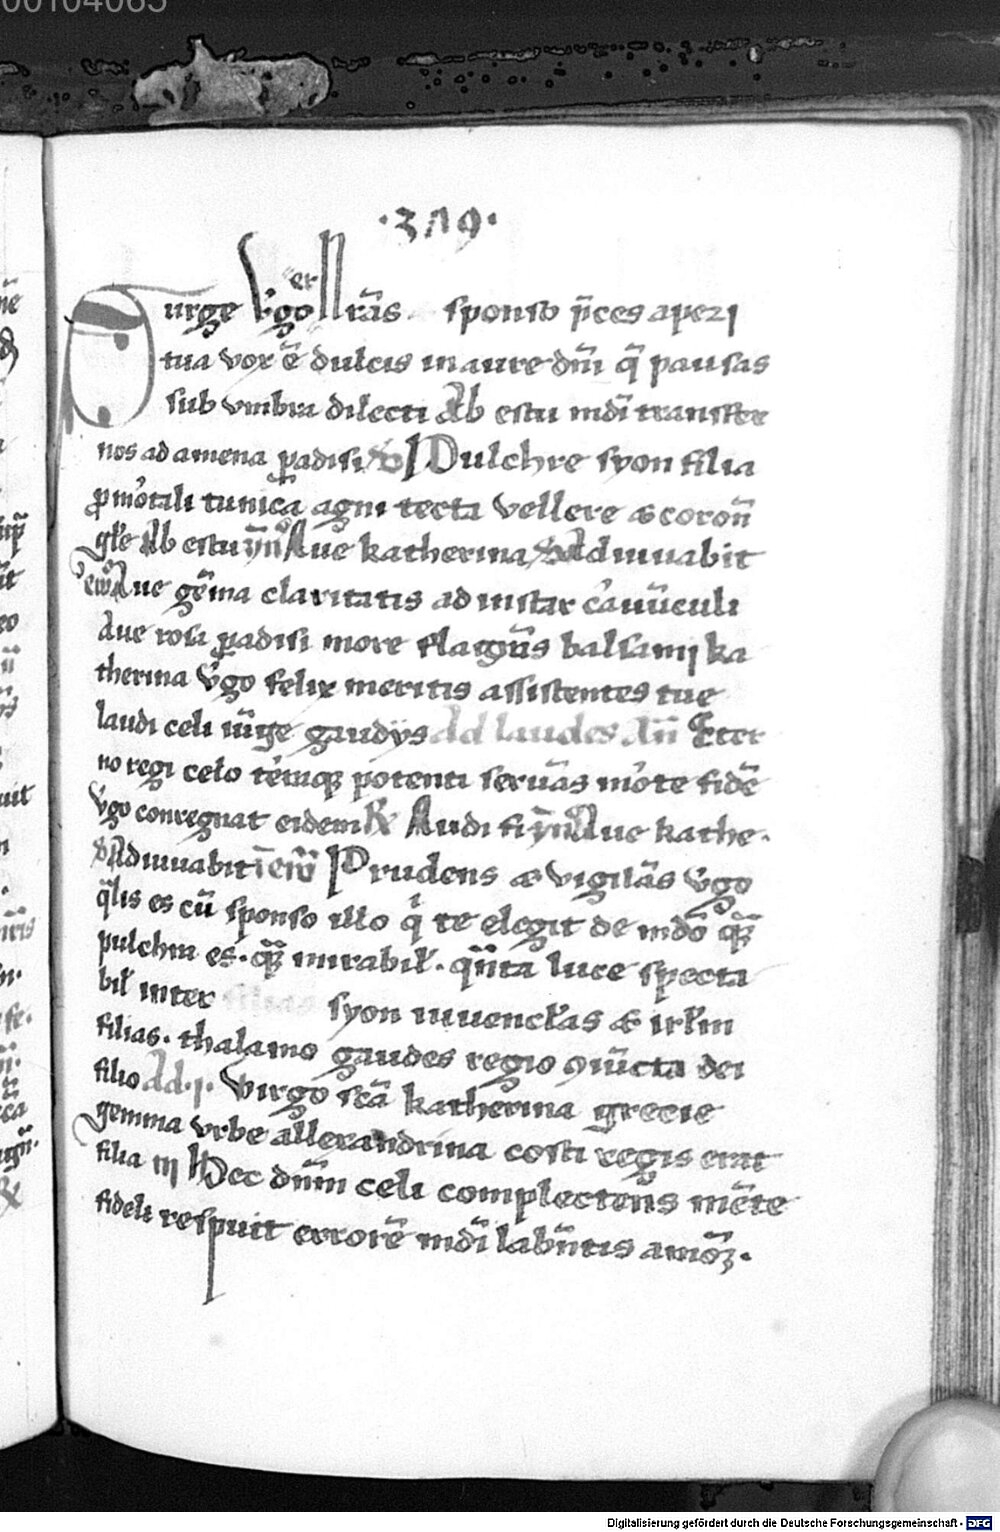 00104065
·3Λ9·
Surge v̾go n̄rās sponso p̄ces aperi
tua vox ē dulcis in aure dm̄i q̄ pausas
sub vmbra dilecti Ab estu mdi transfer
nos ad amena ꝑadisi V Pulchre syon filia
ꝓ mortali tunica agni tecta vellere & coron̄
gl̄e Ab estu ym̄ Aue katherina V Adiuuabit
ew̄ Aue gēma claritatis ad instar carbūculi
Aue rosa ꝑadisi more flagrās balsami ka
therina v̾go felix meritis assistentes tue
laudi celi iūge gaudijs Ad laudes Añ Eter
no regi celo terraqꝫ potenti seruās morte fidē
v̾go conregnat eidem R̸ Audi fi ym̄ Aue kathe·
V Adiuuabit ī ew̄ Prudens & vigilās v̾go
q̄lis es cū sponso illo qͥ te elegit de mdō qꝫ
pulchra es· qꝫ mirabil̄· qn̄ta luce specta
bil̄ inter filias syon iuuencl̄as & irl̄m
filias· thalamo gaudes regio ꝯiūcta dei
filio Ad·j· Virgo scā katherina grecie
gemma vrbe allexandrina costi regis erat
filia iij Hec dn̄m celi complectens mēte
fideli respuit errorē mdi labn̄tis amoꝝ·
Digitalisierung gefördert durch die Deutsche Forschungsgemeinschaft - DFG